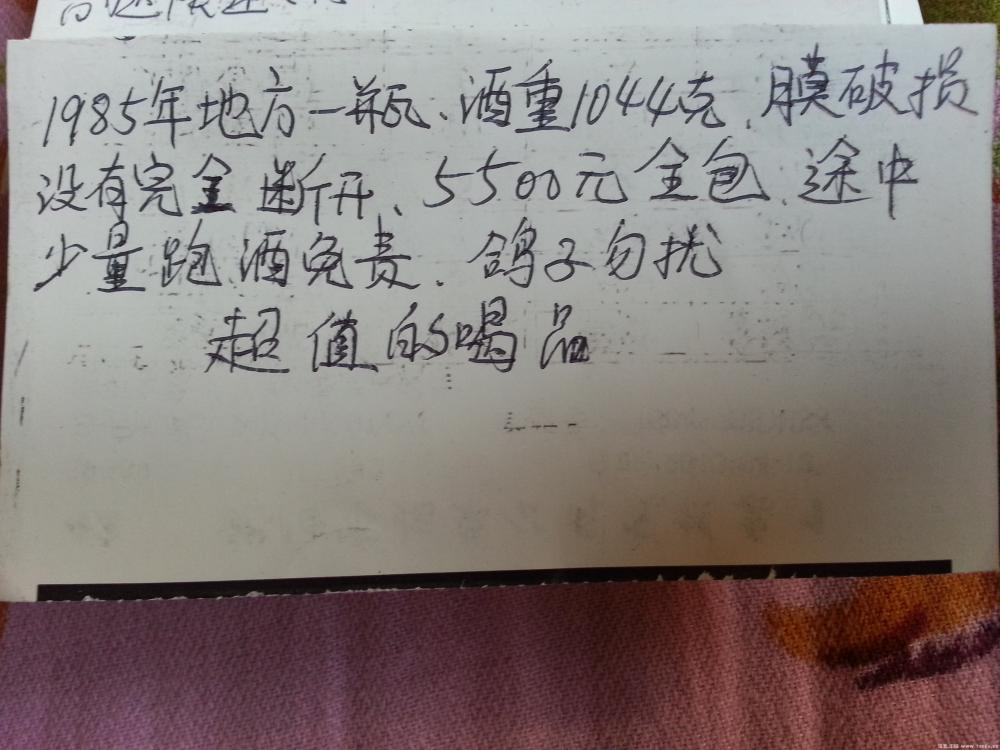 1985年地方一瓶、酒重1044克、膜破损
没有完全断开、5500元全包、途中
少量跑酒免责、鸽子勿扰
超值的喝品